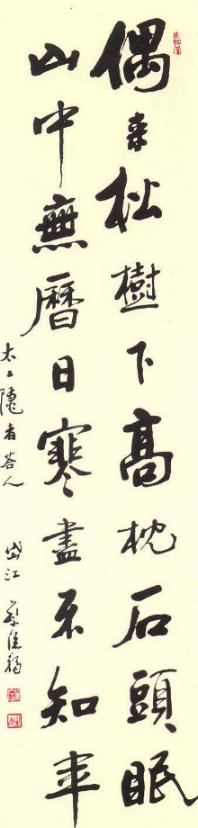 偶来松樹下高枕石頭眠
山中無曆日寒盡不知年
太上隱者答人 岱江